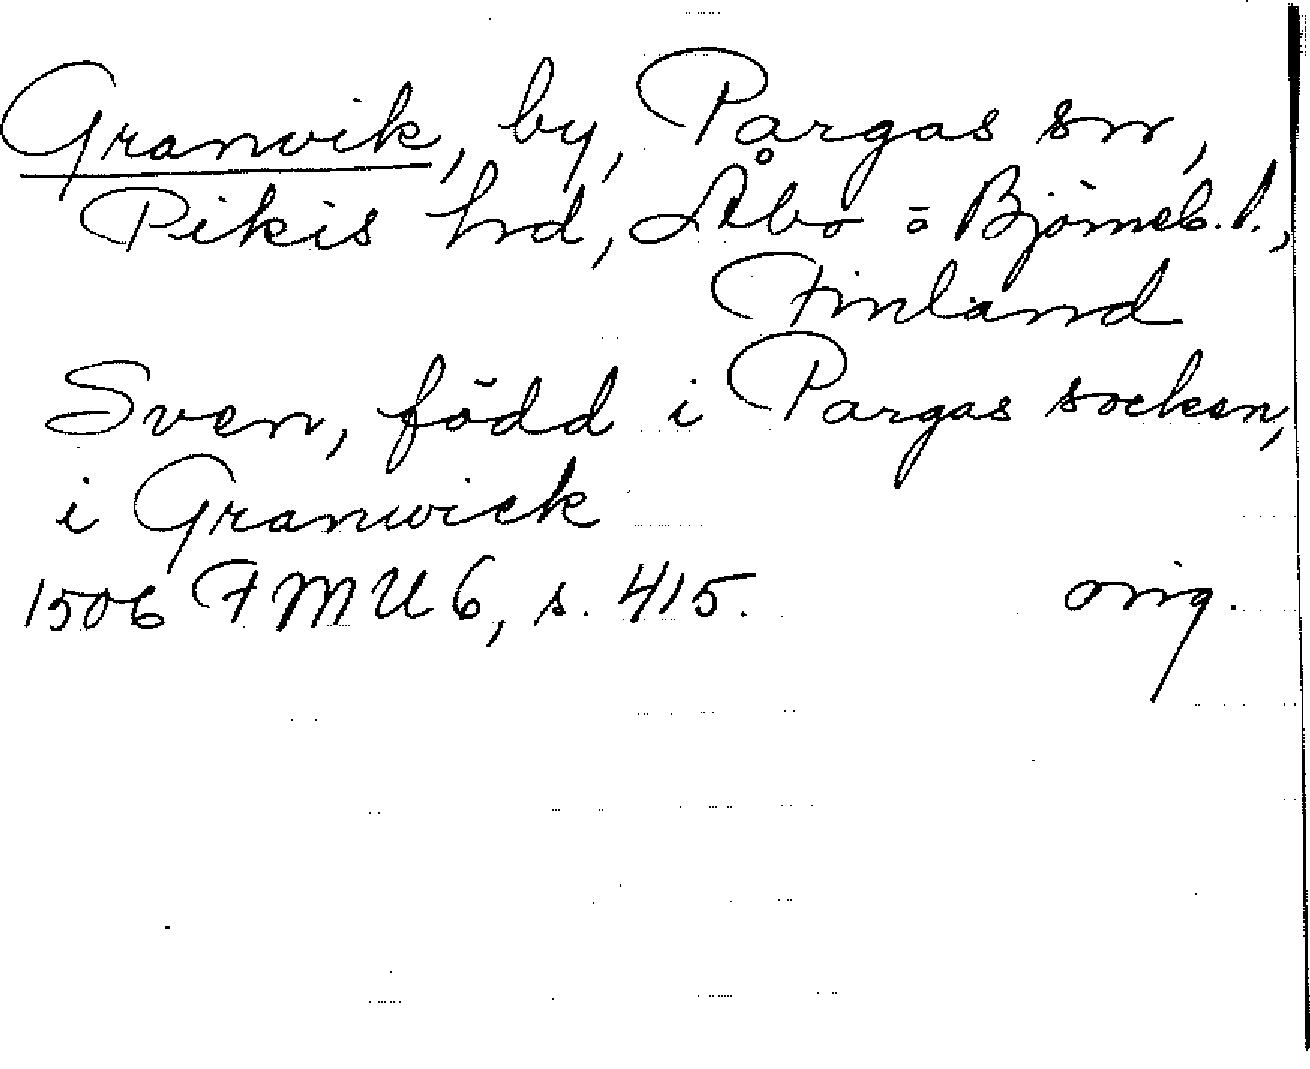 Granvik, by, Pargas sn,
Pikis hd, Åbo o Björneb. l.,
Finland
Sven, född i Pargas socken,
i Granwick
1506 FMU 6, s. 415. orig.